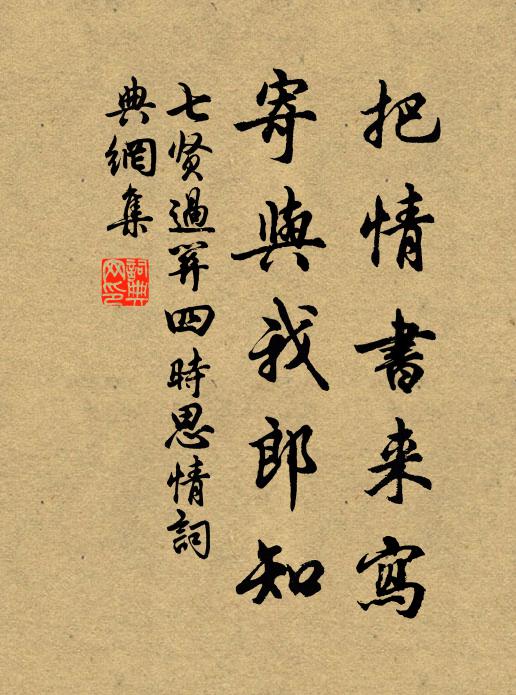 把情書来寫
寄與我郎知
七贤過関四時思情詞
典網集
詞典
网印